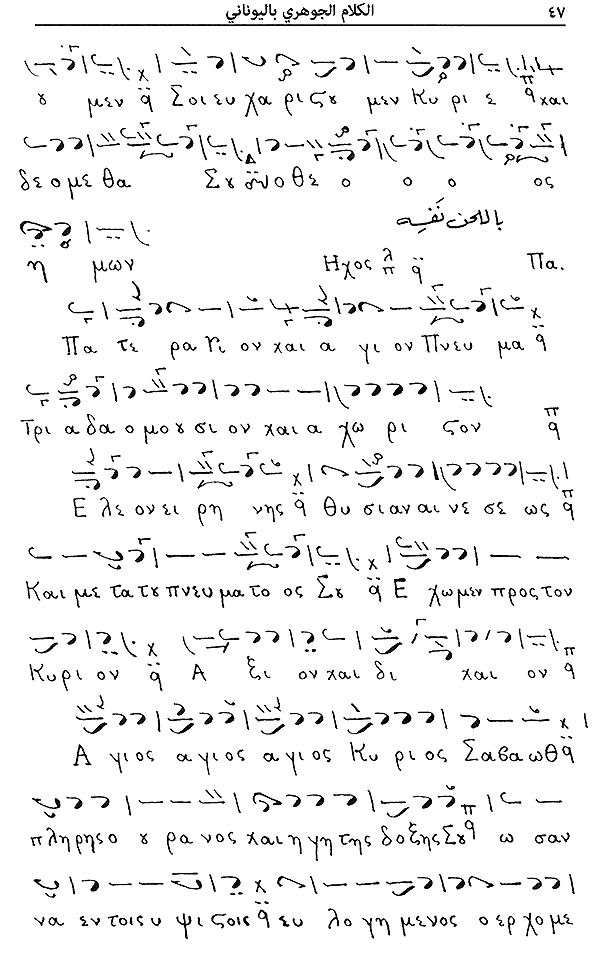 الكلام الجوهري باليوناني ٤٧
ου μεν Σοι ευ χα ρι στου μεν Κυ ρι ε και
δε ο με θα Σου ο Θε ο ο ο ος
باللحن نَفْسِه
η μων Ηχος λ π Πα.
Πα τε ρα Υι ον και α γι ον Πνευ μα
Τρι α δα ο μου σι ον και α χω ρι στον
Ε λε ον ει ρη νης θυ σι αν αι νε σε ως
Και με τα του πνευ μα το ος Σου Ε χω μεν προς τον
Κυ ρι ον Α ξι ον και δι και ον
Α γι ος α γι ος α γι ος Κυ ρι ος Σα βα ωθ
πλη ρης ο ου ρα νος και η γη της δο ξης Σου ω σαν
να εν τοις υ ψι στοις ευ λο γη με νος ο ερ χο με